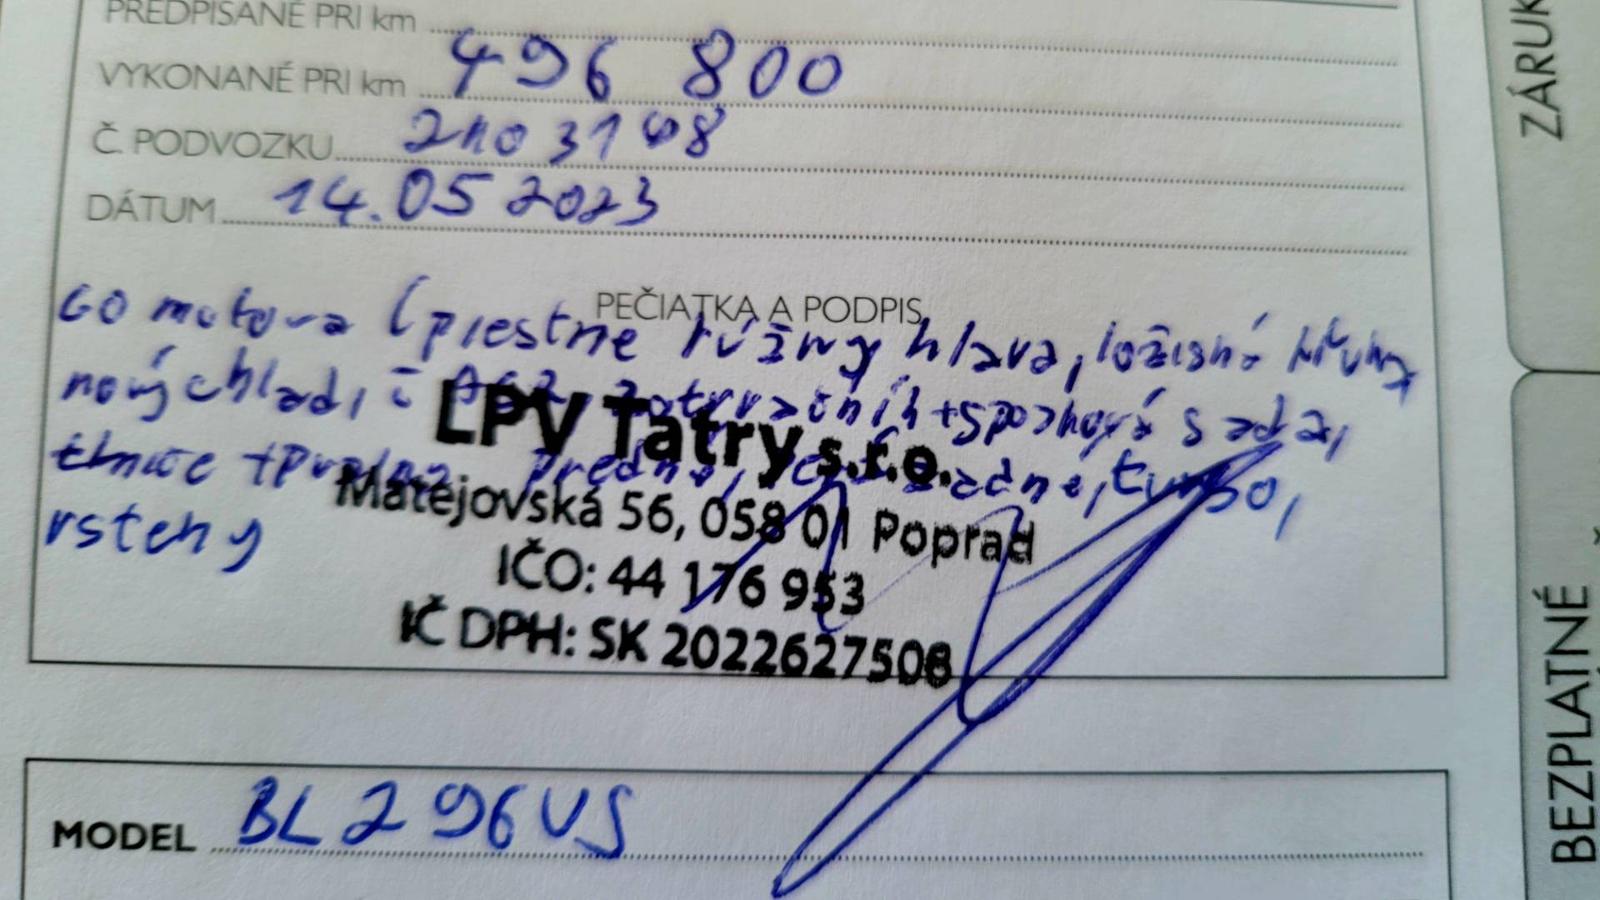 PREDPÍSANÉ PRI km
VYKONANÉ PRI km 496 800
Č. PODVOZKU 2103148
DÁTUM 14.05 2023
PEČIATKA A PODPIS
GO motora (piestne krúžky hlava, ložiská
nový chladič zotrvačník + spojková sada,
tlmiče + predné, zadné, turbo,
vsteky
LPV Tatry s.r.o.
Matejovská 56, 058 01 Poprad
IČO: 44 176 953
IČ DPH: SK 2022627508
MODEL BL296US
ZÁRUK
BEZPLATNÉ